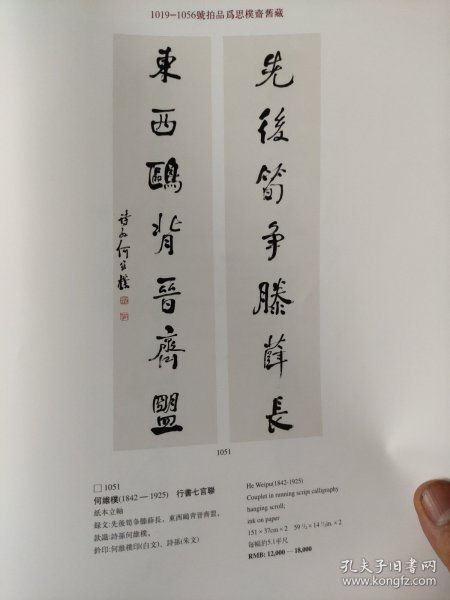 1019-1056號拍品爲思樸齋舊藏
先後筍争滕薛長
東西鷗背晉齊盟
詩孫何維樸
1051
□1051
何維樸(1842—1925) 行書七言聯
紙本立軸
錄文:先後筍争滕薛長,東西鷗背晉齊盟。
款識:詩孫何維樸。
鈐印:何維樸印(白文)、詩孫(朱文)
He Weipu(1842-1925)
Couplet in running script calligraphy
hanging scroll;
ink on paper
151×37cm×2 59 1/2×14 1/2in×2
每幅約5.1平尺
RMB: 12,000—18,000
孔夫子旧书网